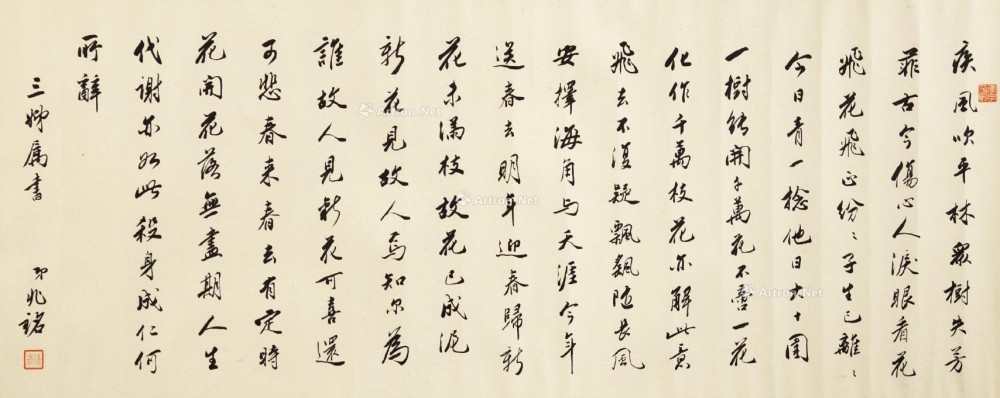 疾風吹平林眾樹失芳
菲古今傷心人淚眼看花
飛花飛正紛〻子生已離〻
今日青一捻他日大十圍
一樹能開千萬花不啻一花
化作千萬枝花亦解此意
飛去不復疑飄飄隨長風
安擇海角与天涯今年
送春去明年迎春歸新
花未滿枝故花已成泥
新花見故人焉知尔為
誰故人見新花可喜還
可悲春来春去有定時
花開花落無盡期人生
代謝亦如此殺身成仁何
所辭
三姊属書
兆銘
Artron.Net
Artron.Net
Artron.Net
Artron.Net
Artron.Net